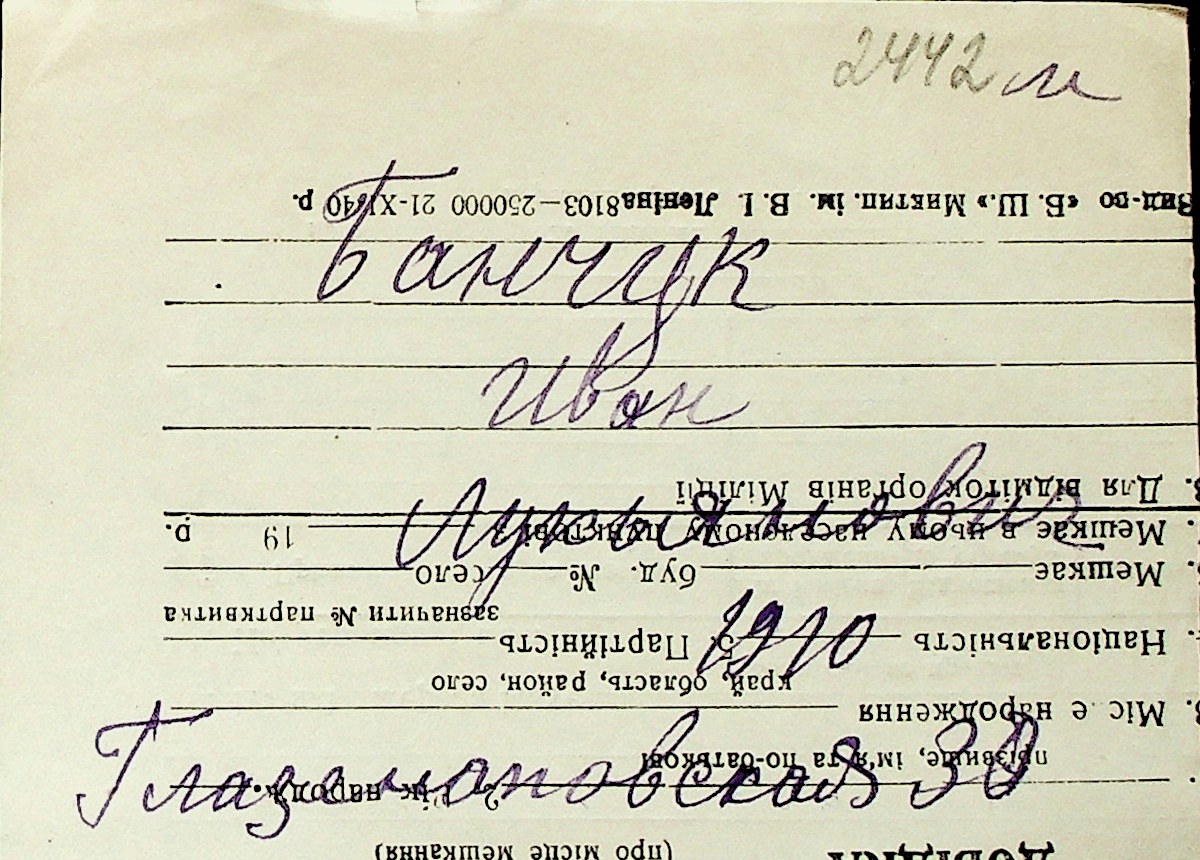 2442 м
Банчук
Иван
Лукьянович
1910
30
ДОВІДКА
(про місце мешкання)
2. Рік народж.
прізвище, ім'я та по-батькові
3. Місце народження
край, область, район, село
Національність 5. Партійність
зазначити № партквитка
Мешкає буд. № село
Мешкає в цьому населеному пункті з 19 р.
Для відміток органів Міліції
Вид-во «Б. Ш.» Миктип. ім. В. І. Леніна 8103—250000 21-XI 40 р.